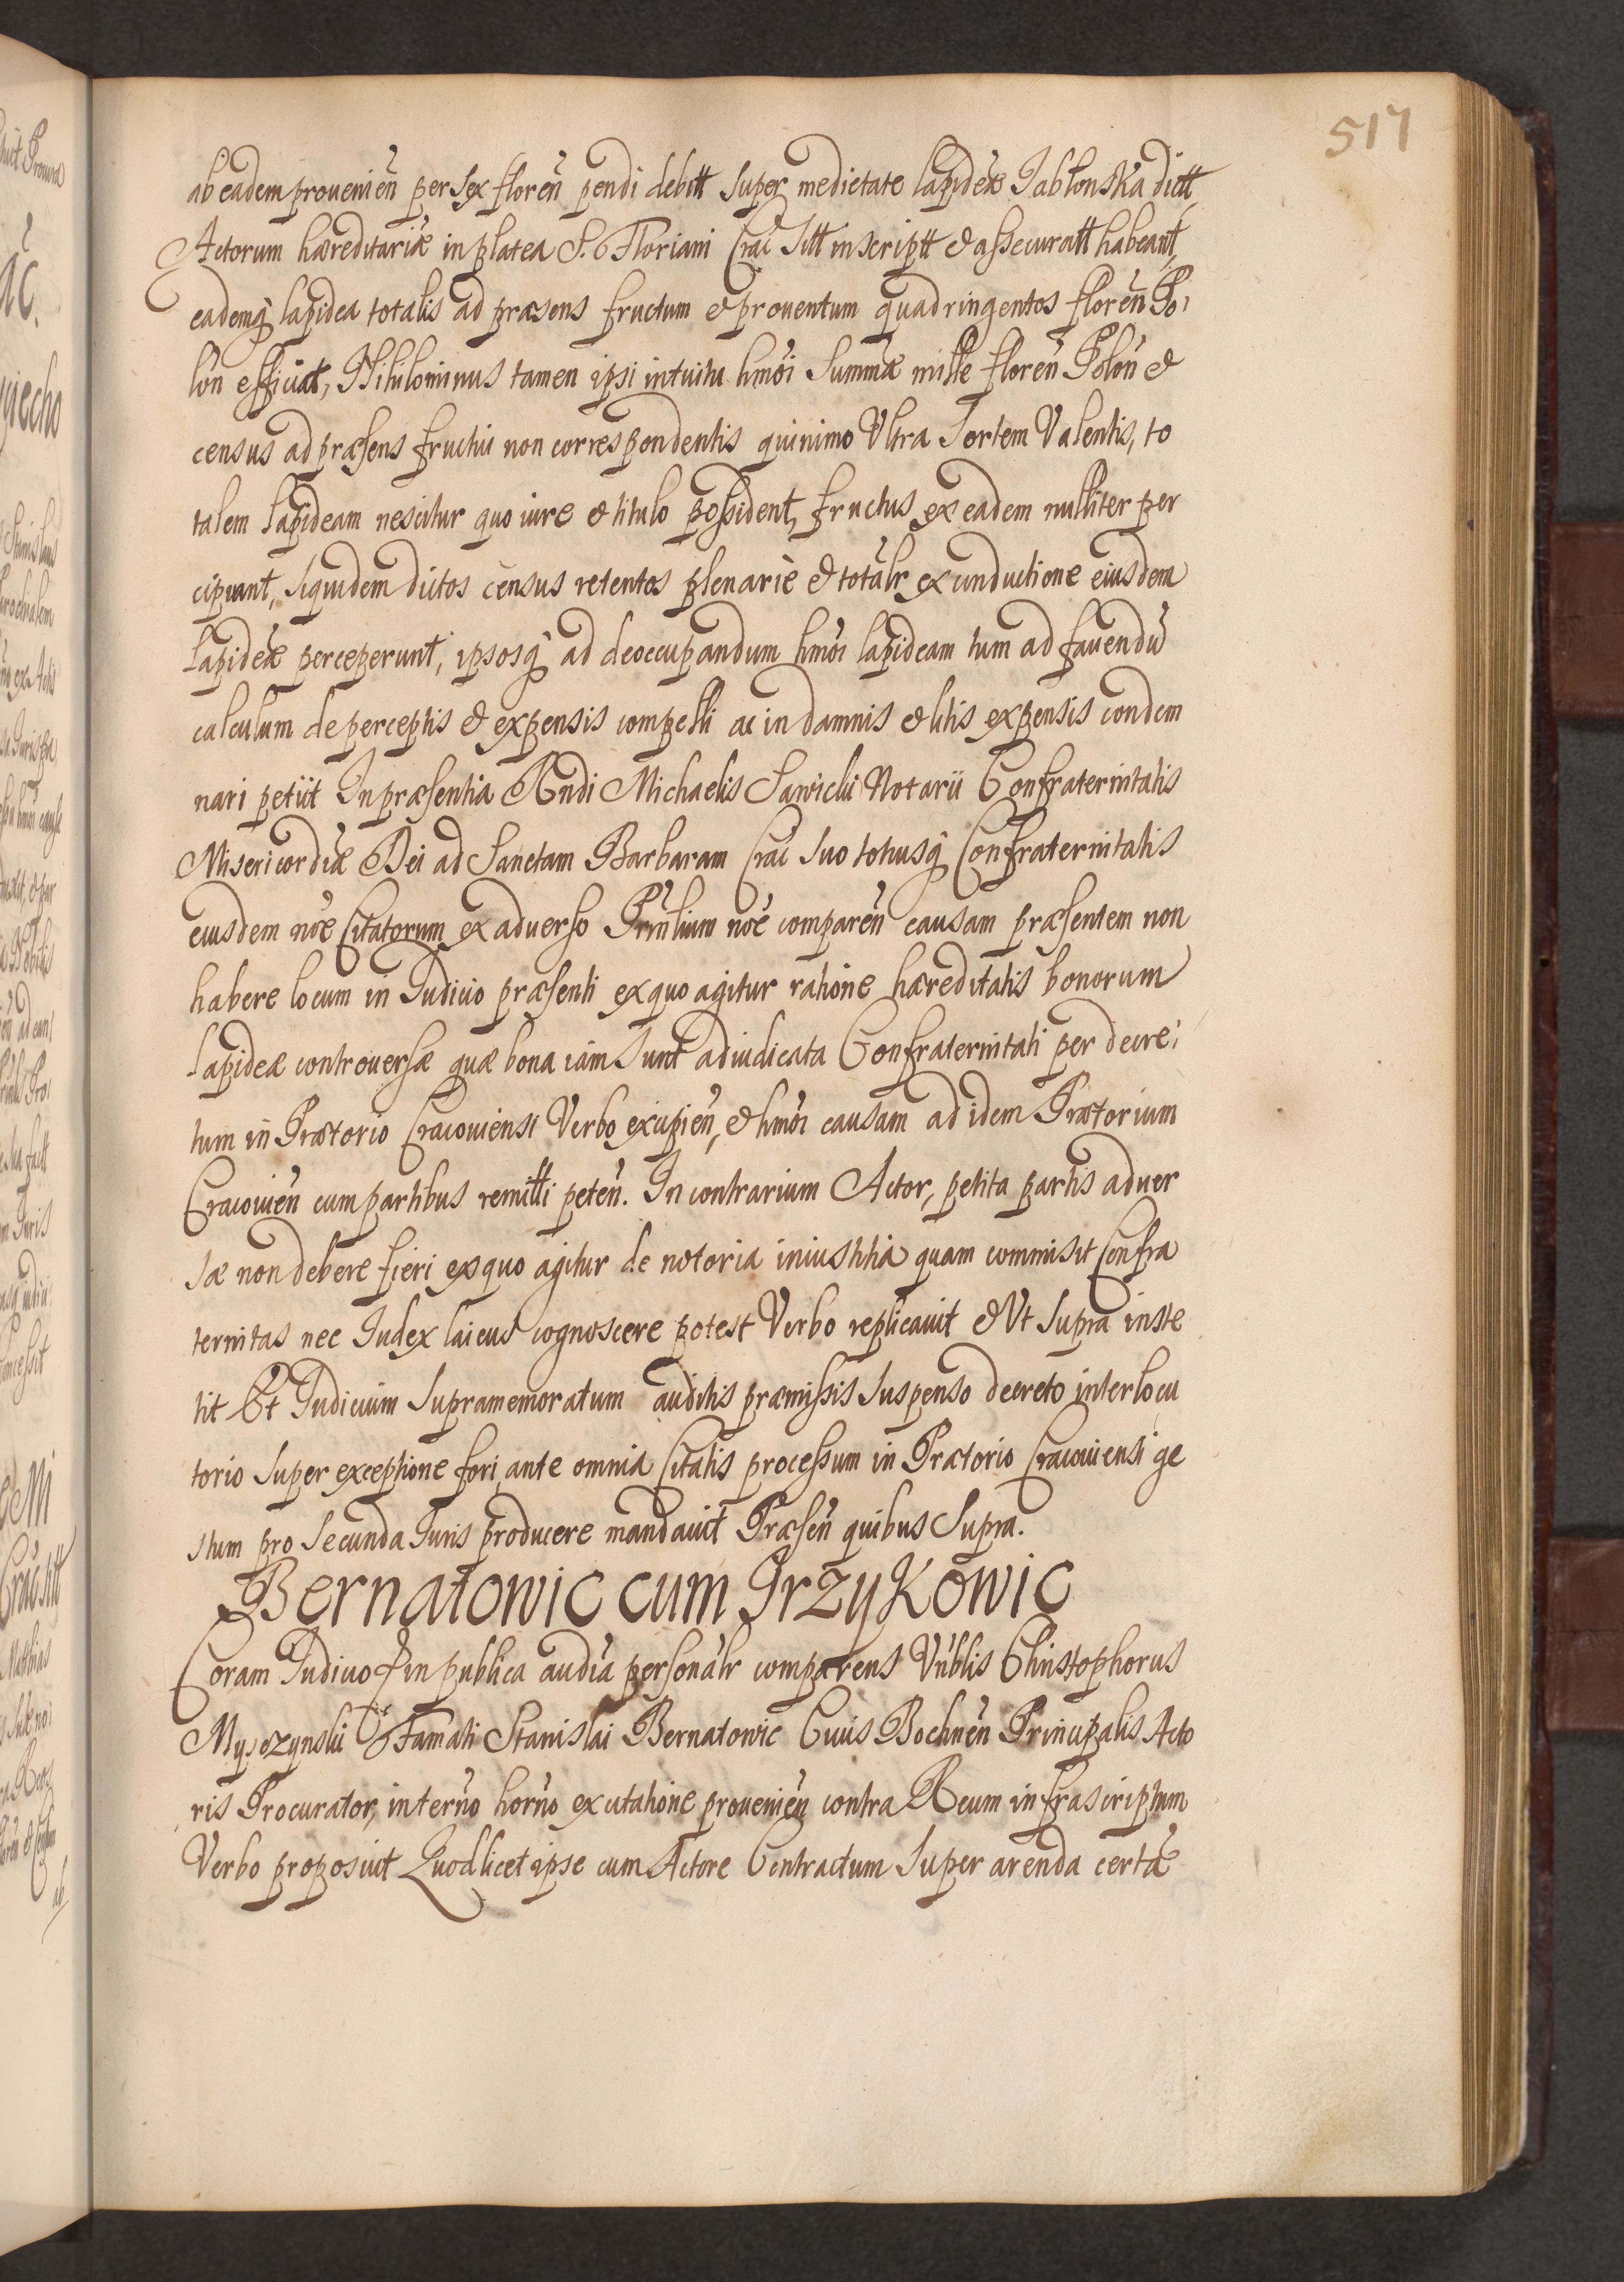 517
ab eadem prouenien̄ per sex floren̄ pendi debitt super medietate lapideæ Jabłonska dictt,
Actorum hæreditariæ in platea S. Floriani Crac̄ sitt inscriptt & assecuratt habeant,
eademq̄ lapidea totalis ad præsens fructum & prouentum quadringentos floren̄ Po,
lon̄ efficiat, Nihilominus tamen ipsi intuitu hm̄oi Summæ mille floren̄ Polon̄ &
census ad præsens fructui non correspondentis quinimo Vltra Sortem Valentis, to
talem lapideam nescitur quo iure & titulo possident, fructus ex eadem nulliter per
cipiunt, siquidem dictos census retentos plenariè & totalr̄ ex conductione eiusdem
lapideæ perceperunt, ipsosq̄ ad deoccupandum hm̄oi lapideam tum ad fauendū
calculum de perceptis & expensis compelli ac in damnis & litis expensis condem
nari petiit In præsentia Rn̄di Michaelis Sawicki Notarii Confraternitatis
Misericordiæ Dei ad Sanctam Barbaram Crac̄ suo totiusq̄ Confraternitatis
eiusdem nōe Citatorum ex aduerso Prin̄lium nōe comparen̄ causam præsentem non
habere locum in Iudicio præsenti ex quo agitur ratione hæreditatis bonorum
lapideæ controuersæ quæ bona iam sunt adiudicata Confraternitati per decre,
tum in Prætorio Cracouiensi Verbo excipien̄, & hm̄oi causam ad idem Prætorium
Cracouien̄ cum partibus remitti peten̄. In contrarium Actor, petita partis aduer
sæ non debere fieri ex quo agitur de notoria iniustitia quam commisit Confra
ternitas nec Iudex laicus cognoscere potest Verbo replicauit & Vt supra inste
tit Et Iudicium supramemoratum auditis præmissis suspenso decreto interlocu
torio super exceptione fori ante omnia Citatis processum in Prætorio Cracouiensi ge
stum pro secunda Iuris producere mandauit Præsen̄ quibus Supra.
Bernatowic cum Grzykowic
Coram Iudicio & in publica aud̄ia personalr̄ comparens Vn̄blis Christophorus
Mysczynski Famati Stanislai Bernatowic Ciuis Bochnen̄ Principalis Acto
ris Procurator, in termīno hodiern̄o ex citatione prouenien̄ contra Reum infrascriptum
Verbo proposuit Quod licet ipse cum Actore Contractum super arenda certæ